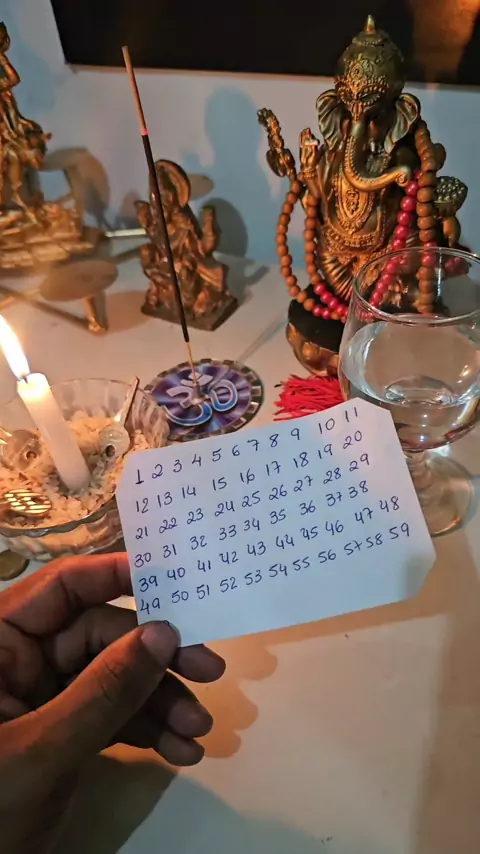 1 2 3 4 5 6 7 8 9 10 11
12 13 14 15 16 17 18 19 20
21 22 23 24 25 26 27 28 29
30 31 32 33 34 35 36 37 38
39 40 41 42 43 44 45 46 47 48
49 50 51 52 53 54 55 56 57 58 59
ॐ